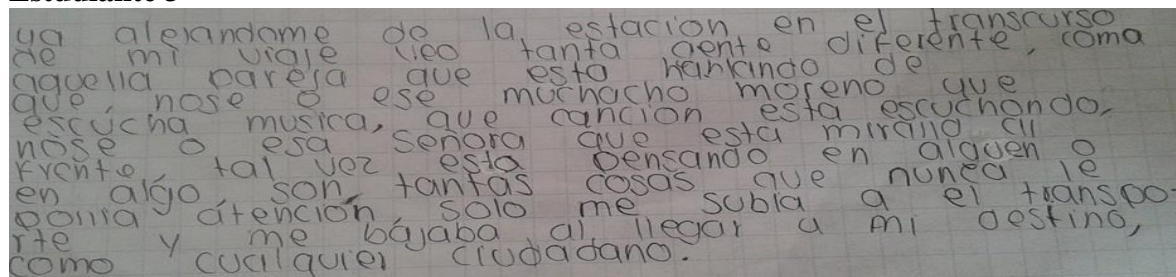 ya alejandome de la estación en el transcurso
de mi viaje veo tanta gente diferente, coma
aquella pareja que esta hablando de
que, nose o ese muchacho moreno que
escucha musica, que canción esta escuchando,
nose o esa señora que esta mirando al
frente, tal vez esta pensando en alguen o
en algo, son tantas cosas que nunca le
ponia atención, solo me subia a el transpo
rte y me bajaba al llegar a mi destino,
como cualquier ciudadano.